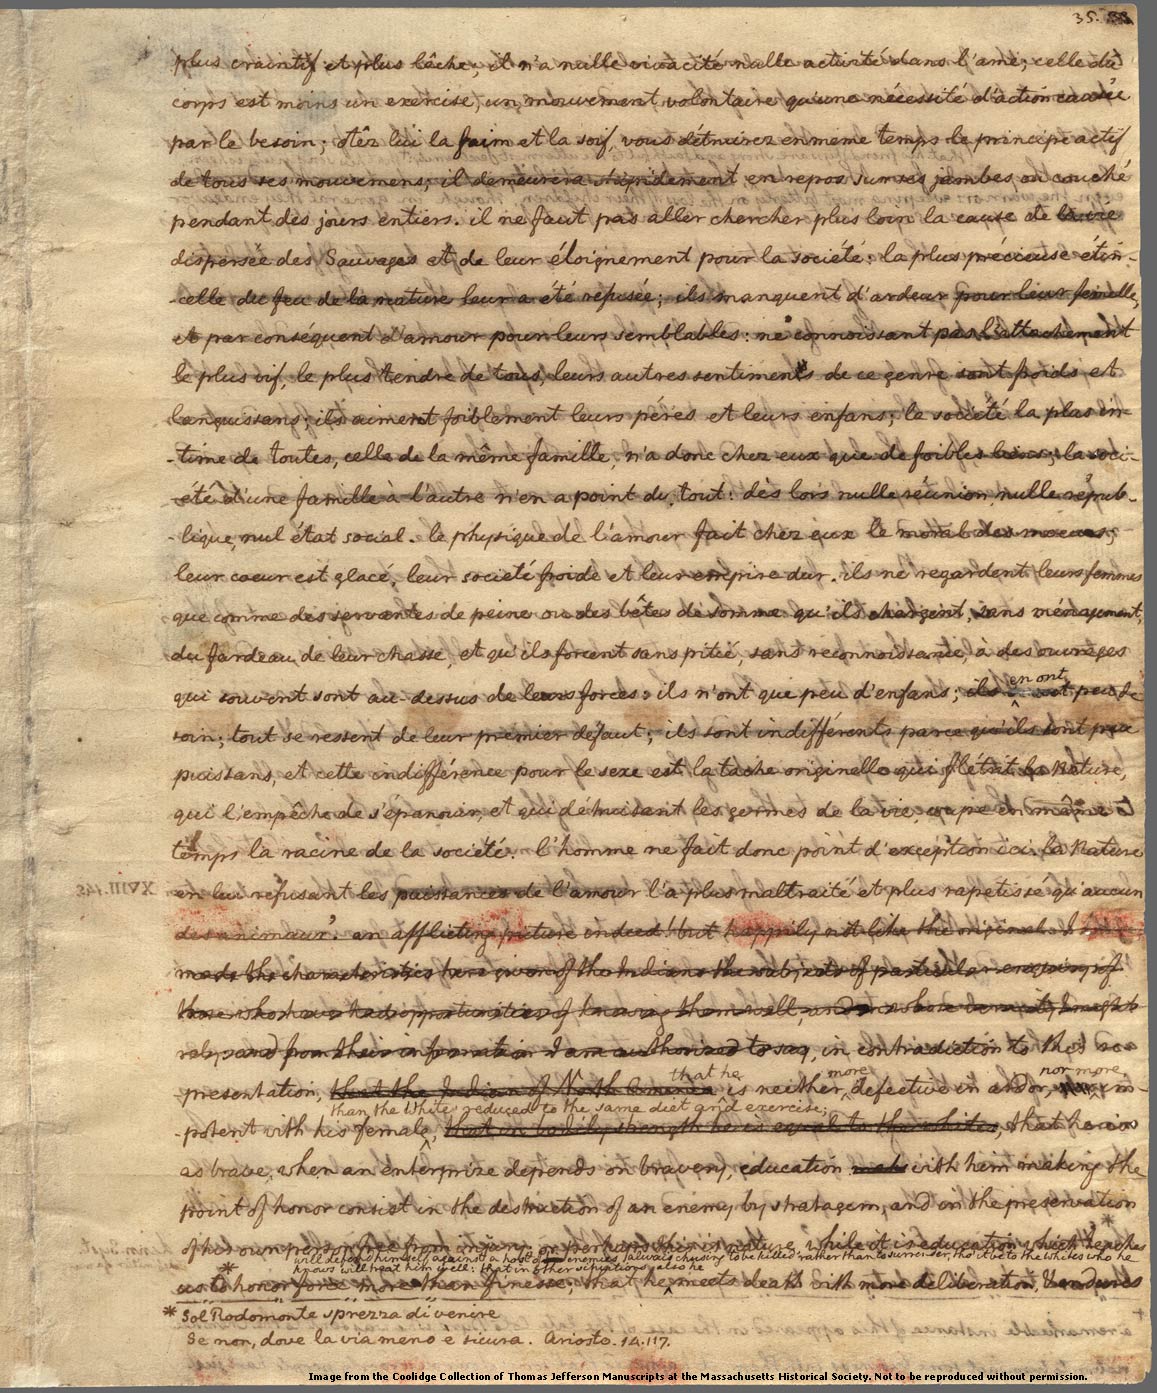 35.
plus craintif et plus lâche; il n'a nulle vivacité nulle activité dans l'ame; celle du
corps est moins un exercise, un mouvement volontaire qu'une nécessité d'action causée
par le besoin; ôtez lui la faim et la soif, vous détruirez en meme temps le principe actif
de tous ses mouvemens; il demeurera stupidement en repos sur ses jambes ou couché
pendant des jours entiers. il ne faut pas aller chercher plus loin la cause de la vie
dispersée des Sauvages et de leur éloignement pour la société: la plus précieuse étin-
-celle du feu de la nature leur a été refusée; ils manquent d'ardeur pour leur femelle,
et par conséquent d'amour pour leurs semblables: ne connoissant pas l'attachement
le plus vif, le plus tendre de tous, leurs autres sentimens de ce genre sont froids et
languissans; ils aiment foiblement leurs péres et leurs enfans; la société la plus in-
-time de toutes, celle de la même famille, n'a donc chez eux que de foibles liens; la soci-
-été d'une famille à l'autre n'en a point du tout: dès lors nulle réunion, nulle répub-
-lique, nul état social. le physique de l'amour fait chez eux le moral des moeurs;
leur coeur est glacé, leur societé froide et leur empire dur. ils ne regardent leurs femmes
que comme des servantes de peine ou des bêtes de somme qu'ils chargent, sans ménagement,
du fardeau de leur chasse, et qu'ils forcent sans pitié, sans reconnoissance, à des ouvrages
qui souvent sont au-dessus de leurs forces: ils n'ont que peu d'enfans; ils en ont peu de
soin; tout se ressent de leur premier défaut; ils sont indifférents parce qu'ils sont peu
puissans, et cette indifférence pour le sexe est la tache originelle qui flétrit la Nature,
qui l'empêche de s'épanouir, et qui détruisant les germes de la vie, coupe en même
temps la racine de la société. l'homme ne fait donc point d'exception ici. la Nature
en lui refusant les puissances de l'amour l'a plus maltraité et plus rapetissé qu'aucun
des animaux.' an afflicting picture indeed! but happily not like the original. I
made the characteristics here given of the Indians the subjects of particular enquiry of
those who have had opportunities of knowing them well, and on whose veracity I might
rely, and from their information I am authorized to say, in contradiction to this re-
that he more nor more
presentation, that the Indian of North America is neither defective in ardor, im-
than the White reduced to the same diet and exercise;
-potent with his female, that in bodily strength he is equal to the whites, that he is
as brave, when an enterprize depends on bravery, education with him making the
point of honor consist in the destruction of an enemy by stratagem, and in the preservation
of his own person free from injury, or perhaps this is nature, while it is education which teaches
will defend himself against a host of enemies, always chusing to be killed rather than to surrender, tho' it be to the whites who he
knows will treat him well: that in other situations also he
us to honor force more than finesse; that he meets death with more deliberation, & endures
* Sol Rodomonte sprezza di venire
Se non, dove la via meno e sicura. Ariosto. 14.117.
Image from the Coolidge Collection of Thomas Jefferson Manuscripts at the Massachusetts Historical Society. Not to be reproduced without permission.